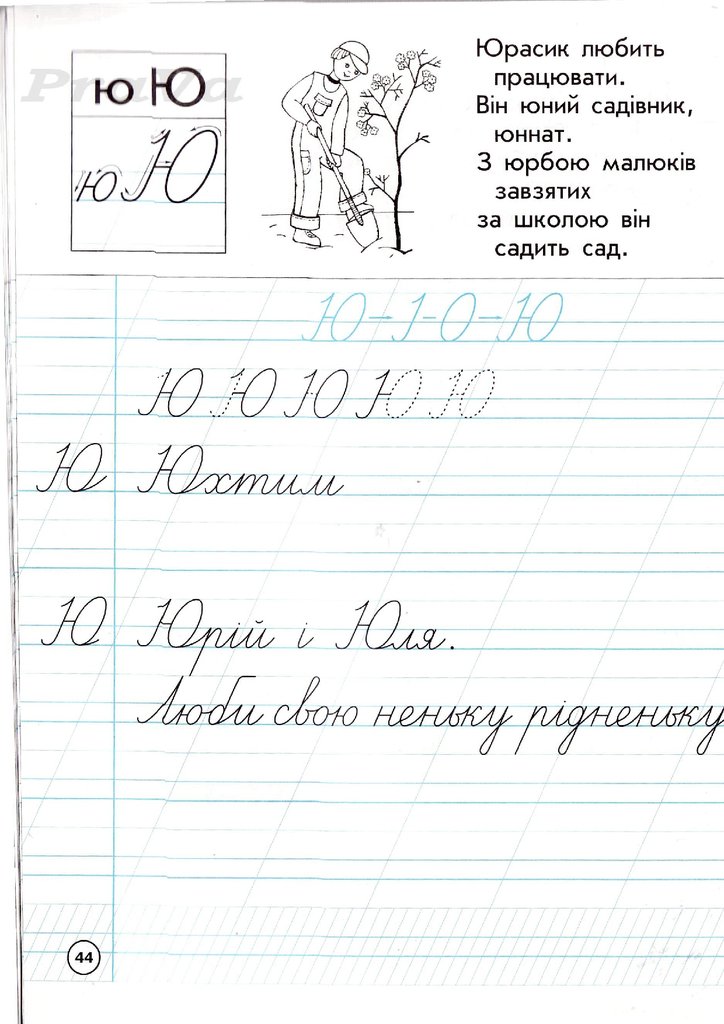 PraVa
ю Ю
ю Ю
Юрасик любить
працювати.
Він юний садівник,
юннат.
З юрбою малюків
завзятих
за школою він
садить сад.
Ю→І-О→Ю
Ю Ю Ю Ю Ю
Ю Юхтим
Ю Юрій і Юля.
Люби свою неньку рідненьку
44